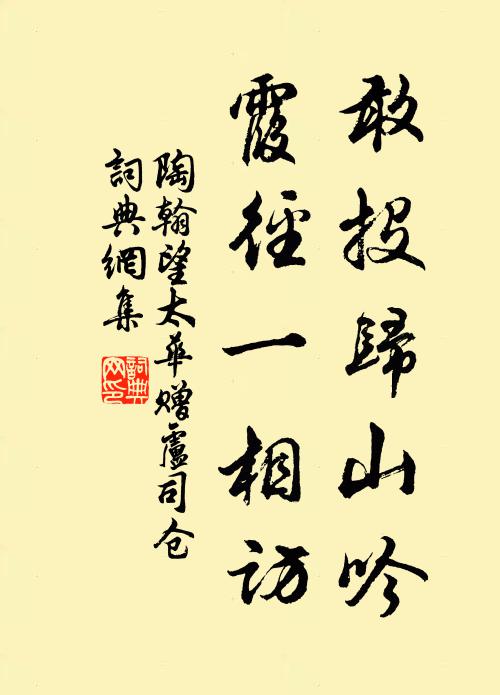 敢投歸山吟
霞徑一相訪
陶翰望太華贈盧司仓
詞典網集
詞典網印